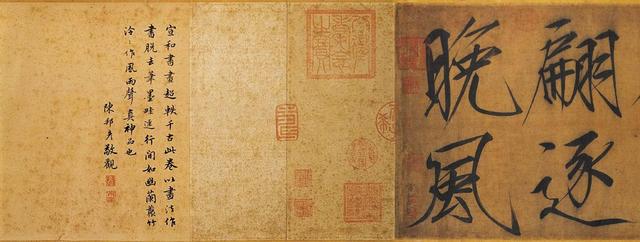 翩逐
晚風
宣和書畫超軼千古此卷以畫法作
書脫去筆墨畦逕行間如幽蘭叢竹
泠〻作風雨聲真神品也
陳邦彥敬觀